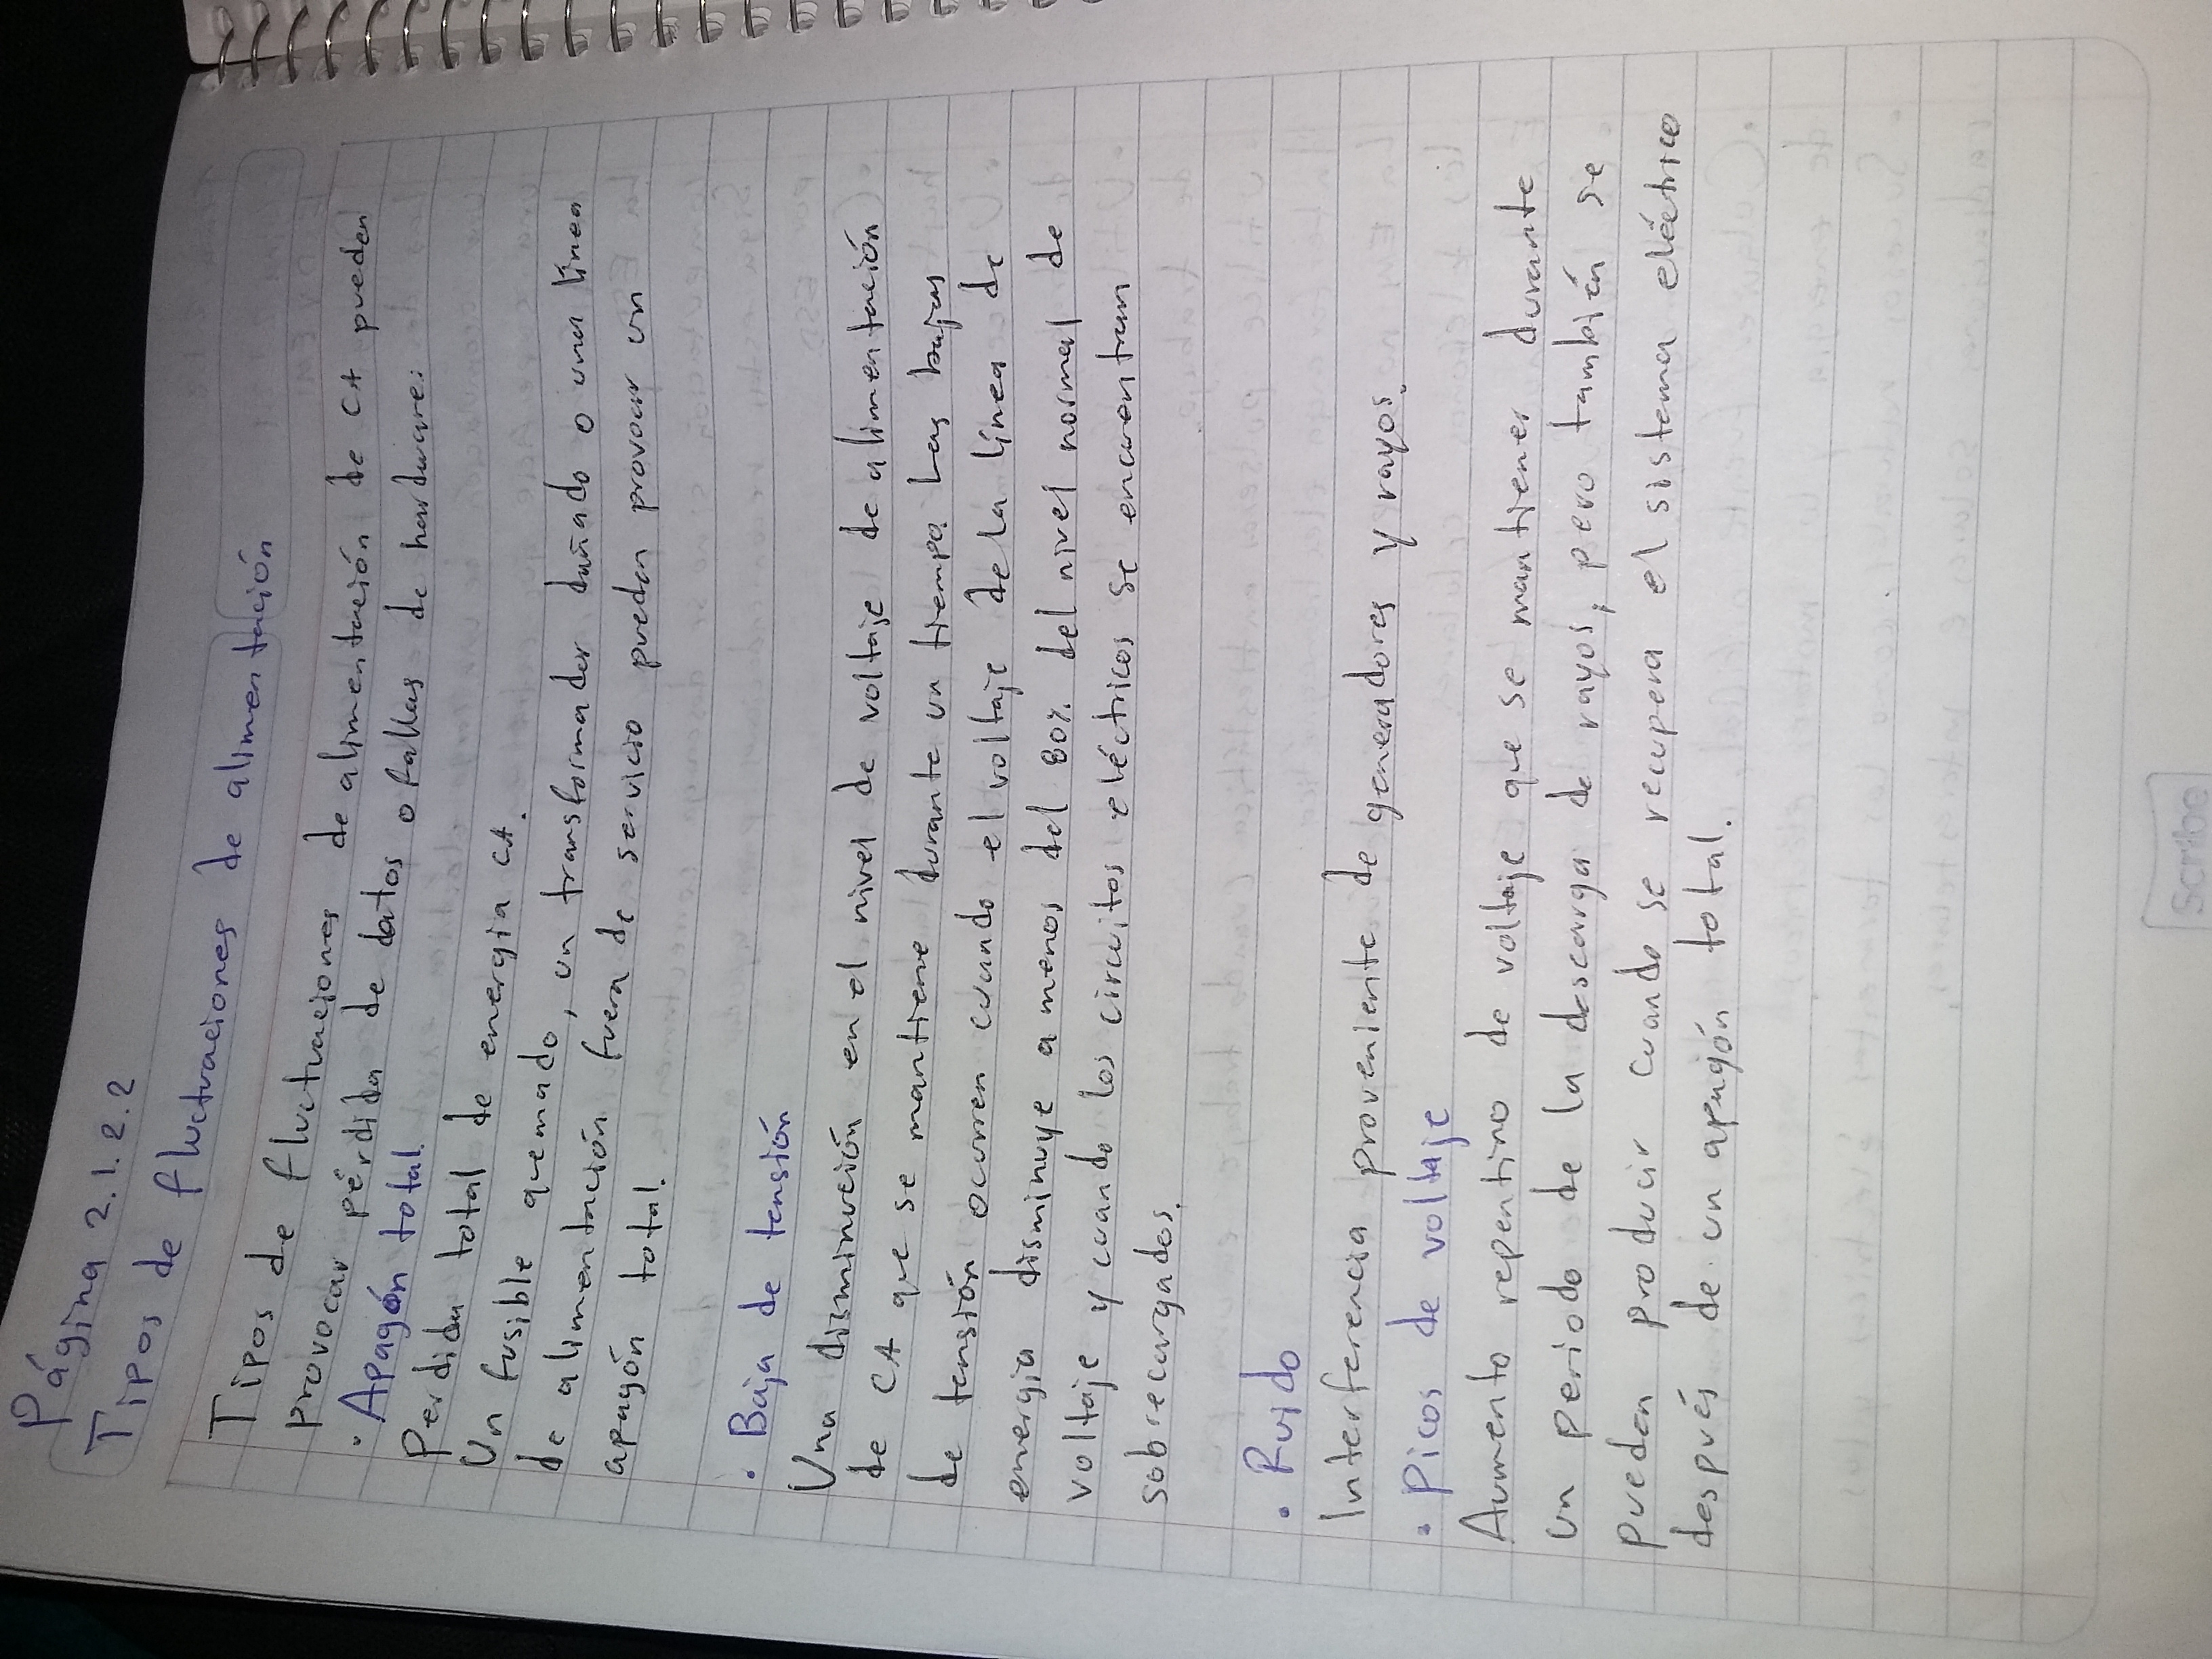 Página 2.1.2.2
Tipos de fluctuaciones de alimentación
Tipos de fluctuaciones de alimentación de CA pueden
provocar pérdida de datos o fallas de hardware:
· Apagón total.
Perdida total de energia CA.
Un fusible quemado, un transformador dañado o una línea
de alimentación fuera de servicio pueden provocar un
apagón total.
· Baja de tensión
Una disminución en el nivel de voltaje de alimentación
de CA que se mantiene durante un tiempo. Las bajas
de tensión ocurren cuando el voltaje de la línea de
energia disminuye a menos del 80% del nivel normal de
voltaje y cuando los circuitos eléctricos se encuentran
sobrecargados.
· Ruido
Interferencia proveniente de generadores y rayos.
· Picos de voltaje
Aumento repentino de voltaje que se mantiener durante
un periodo de la descarga de rayos, pero también se
pueden producir cuando se recupera el sistema eléctrico
después de un apagón total.
Scribe